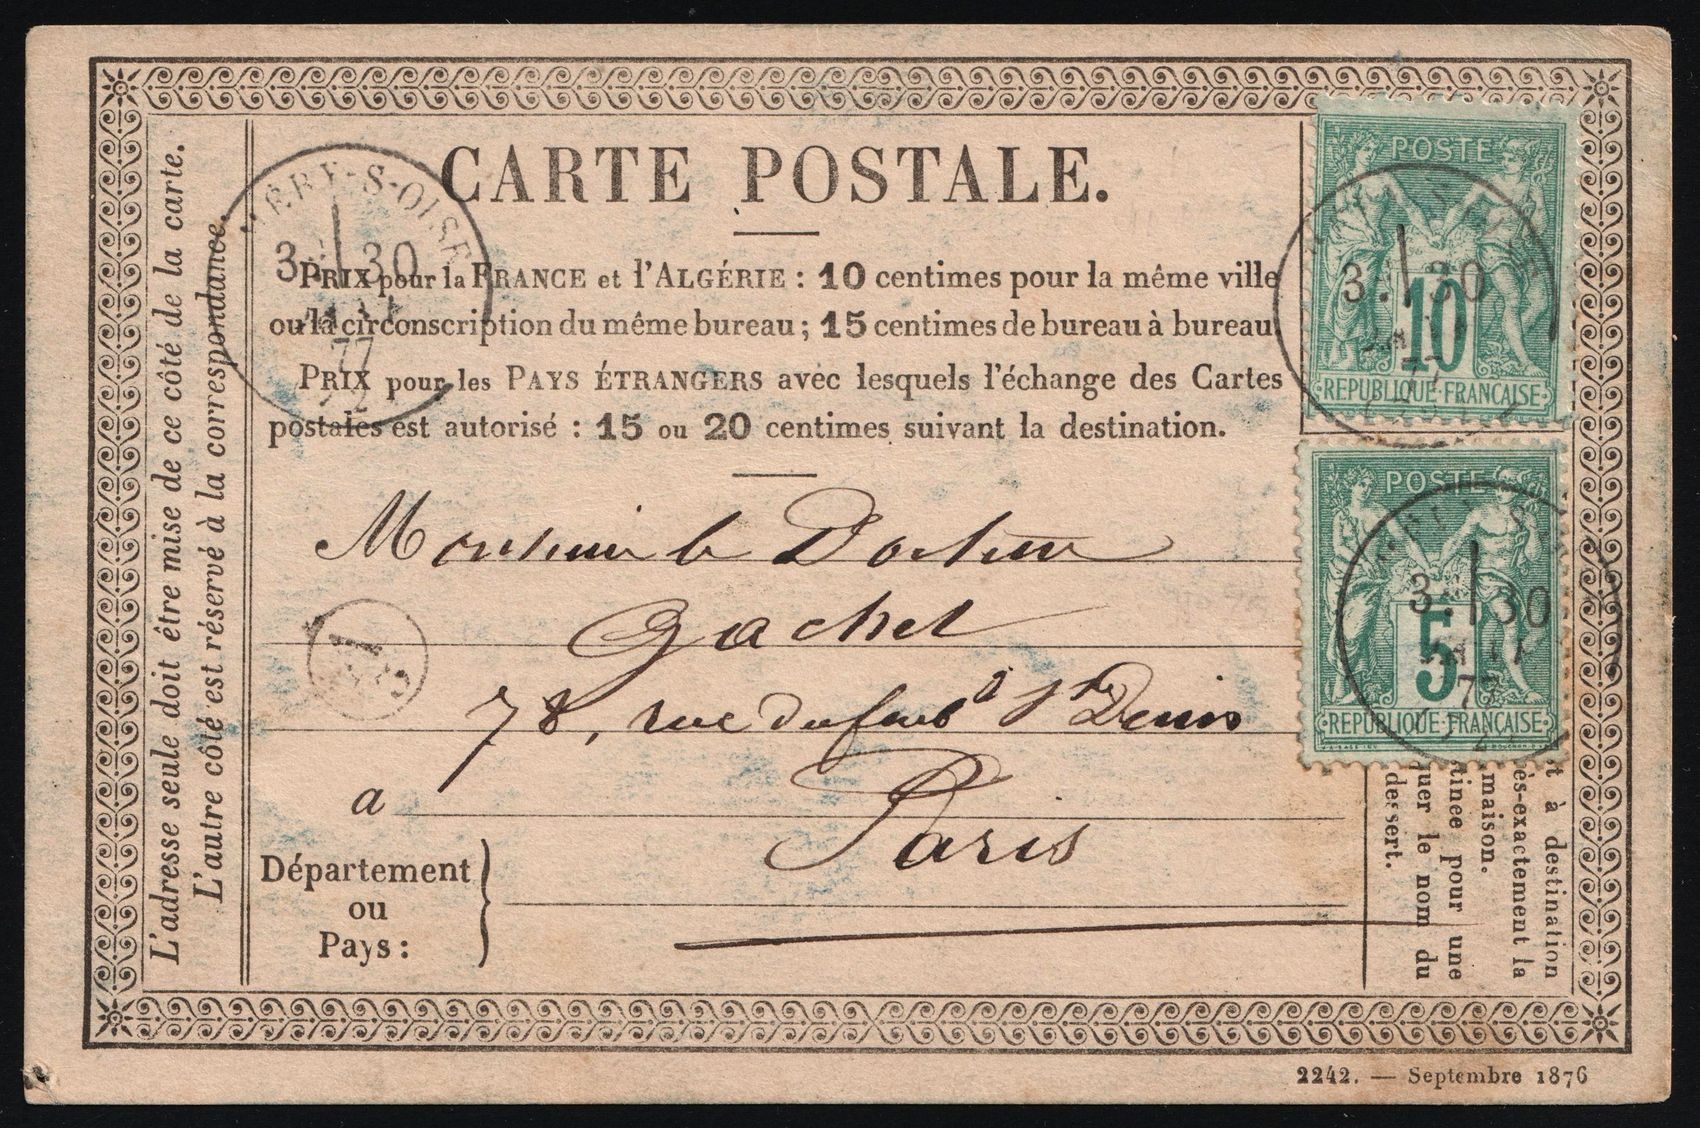 CARTE POSTALE.
PRIX pour la FRANCE et l'ALGÉRIE : 10 centimes pour la même ville
ou la circonscription du même bureau ; 15 centimes de bureau à bureau.
PRIX pour les PAYS ÉTRANGERS avec lesquels l'échange des Cartes
postales est autorisé : 15 ou 20 centimes suivant la destination.
Monsieur le Docteur
Gachet
78, rue du faub.g St Denis
a Paris
Département
ou
Pays :
L'adresse seule doit être mise de ce côté de la carte.
L'autre côté est réservé à la correspondance.
ÉRY-S-OISE
3 30
77
POSTE
10
RÉPUBLIQUE FRANÇAISE
3 30
POSTE
5
RÉPUBLIQUE FRANÇAISE
3 30
t à destination
ès-exactement la
maison.
tinée pour une
quer le nom du
dessert.
2242. — Septembre 1876